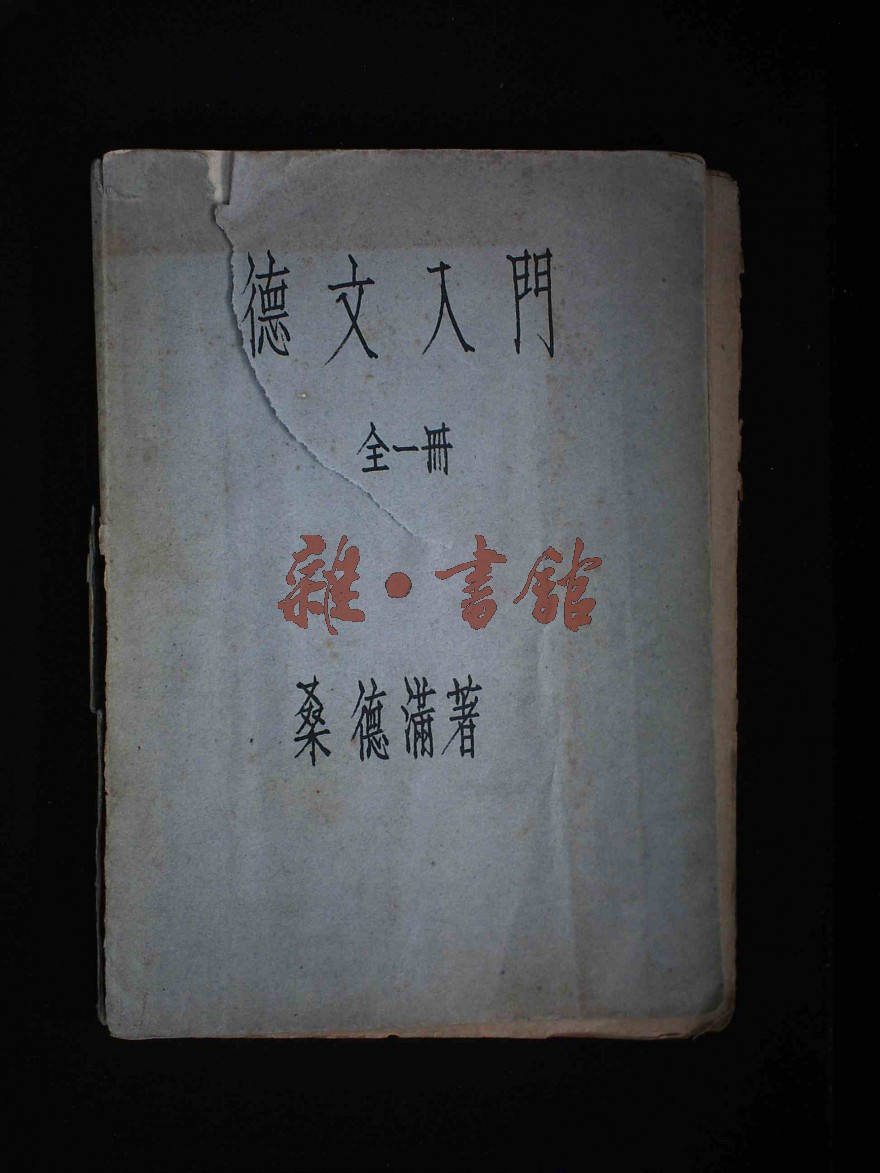 德文入門
全一冊
雜·書館
桑德滿著